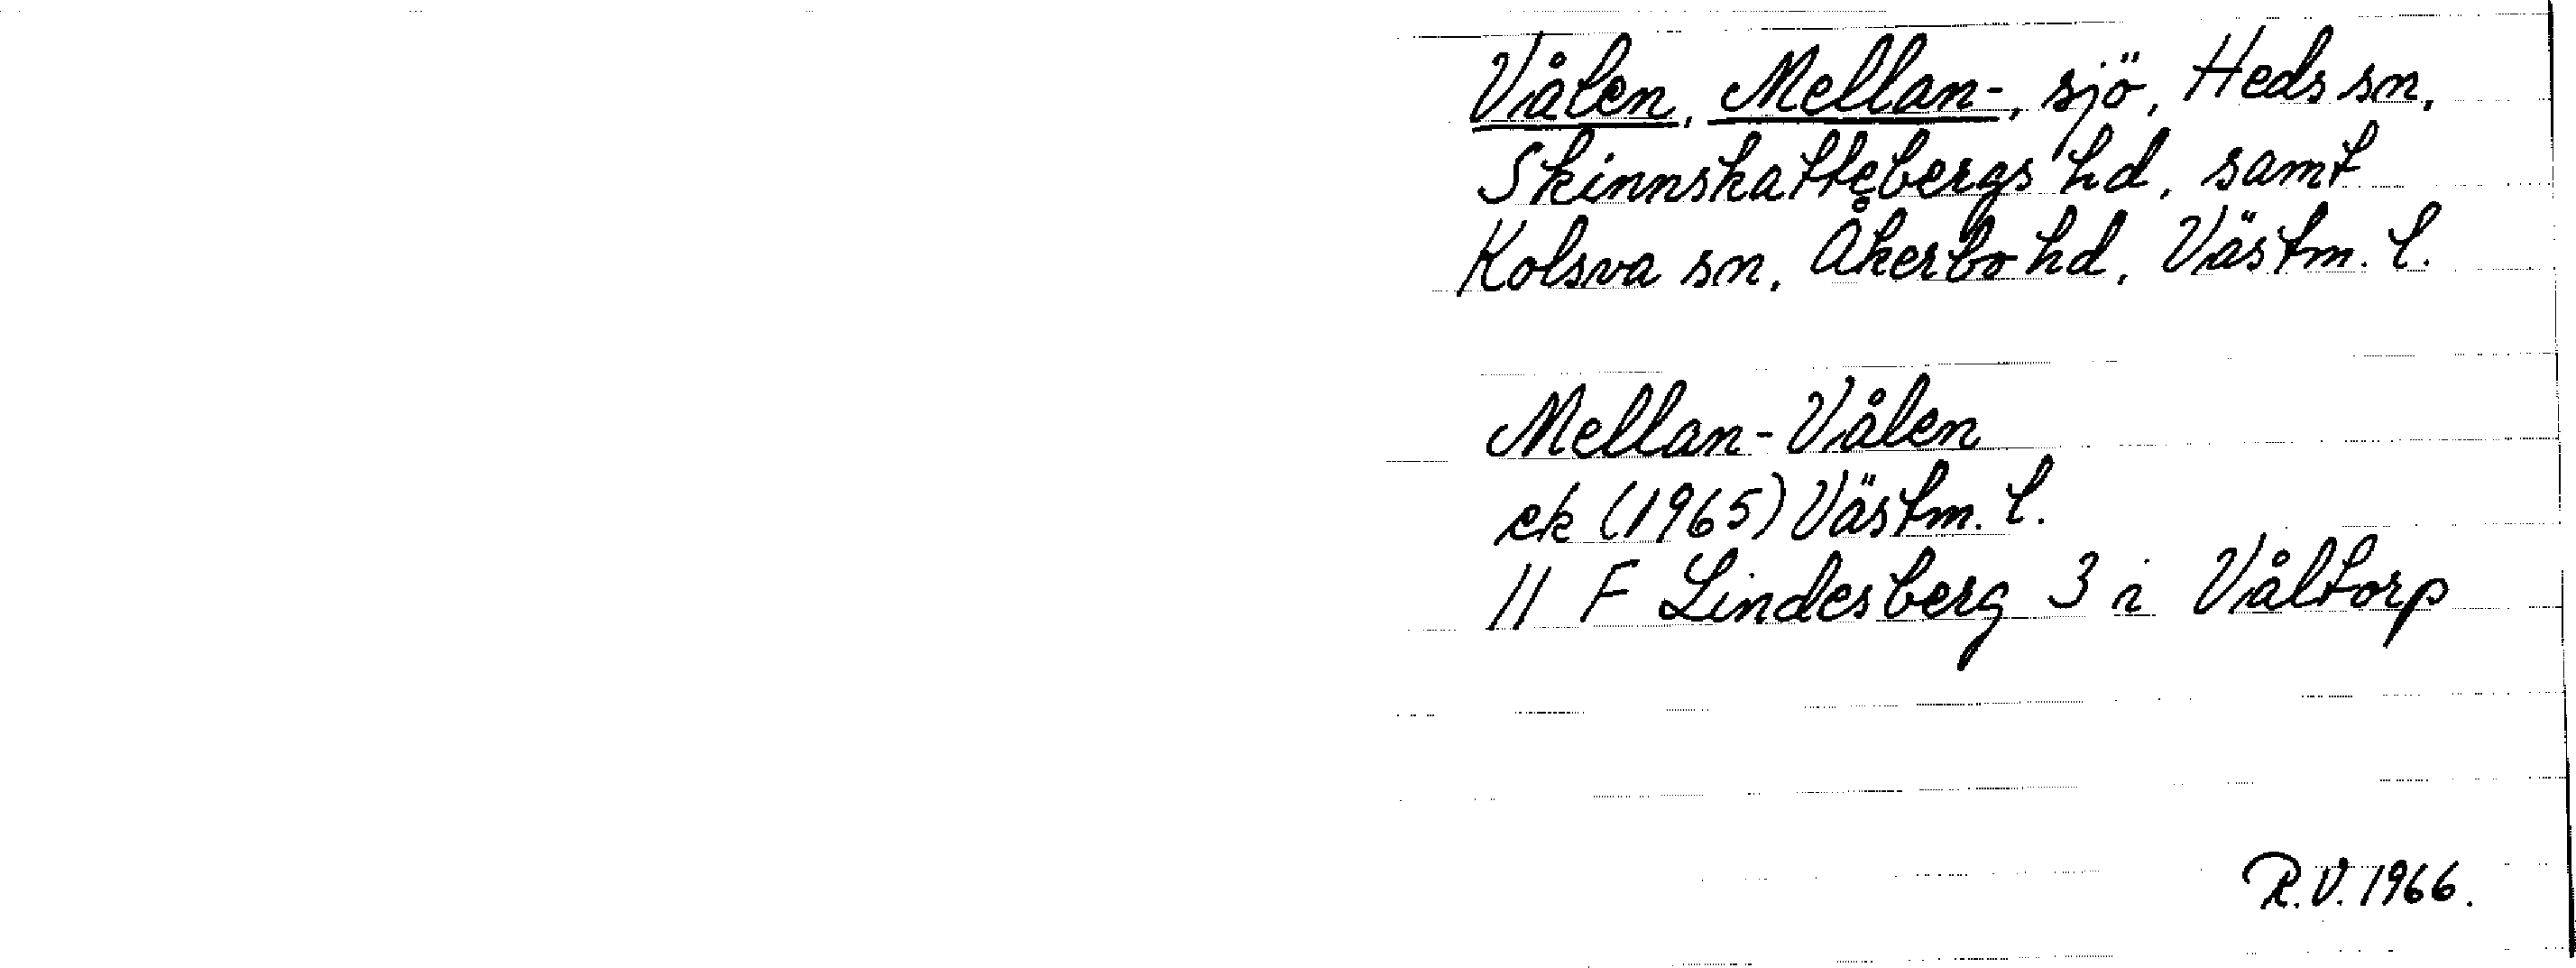 Vålen, Mellan-, sjö, Heds sn,
Skinnskattebergs hd, samt
Kolsva sn, Åkerbo hd, Västm. l.
Mellan-Vålen
ek (1965) Västm. l.
11 F Lindesberg 3 i Våltorp
R.V. 1966.